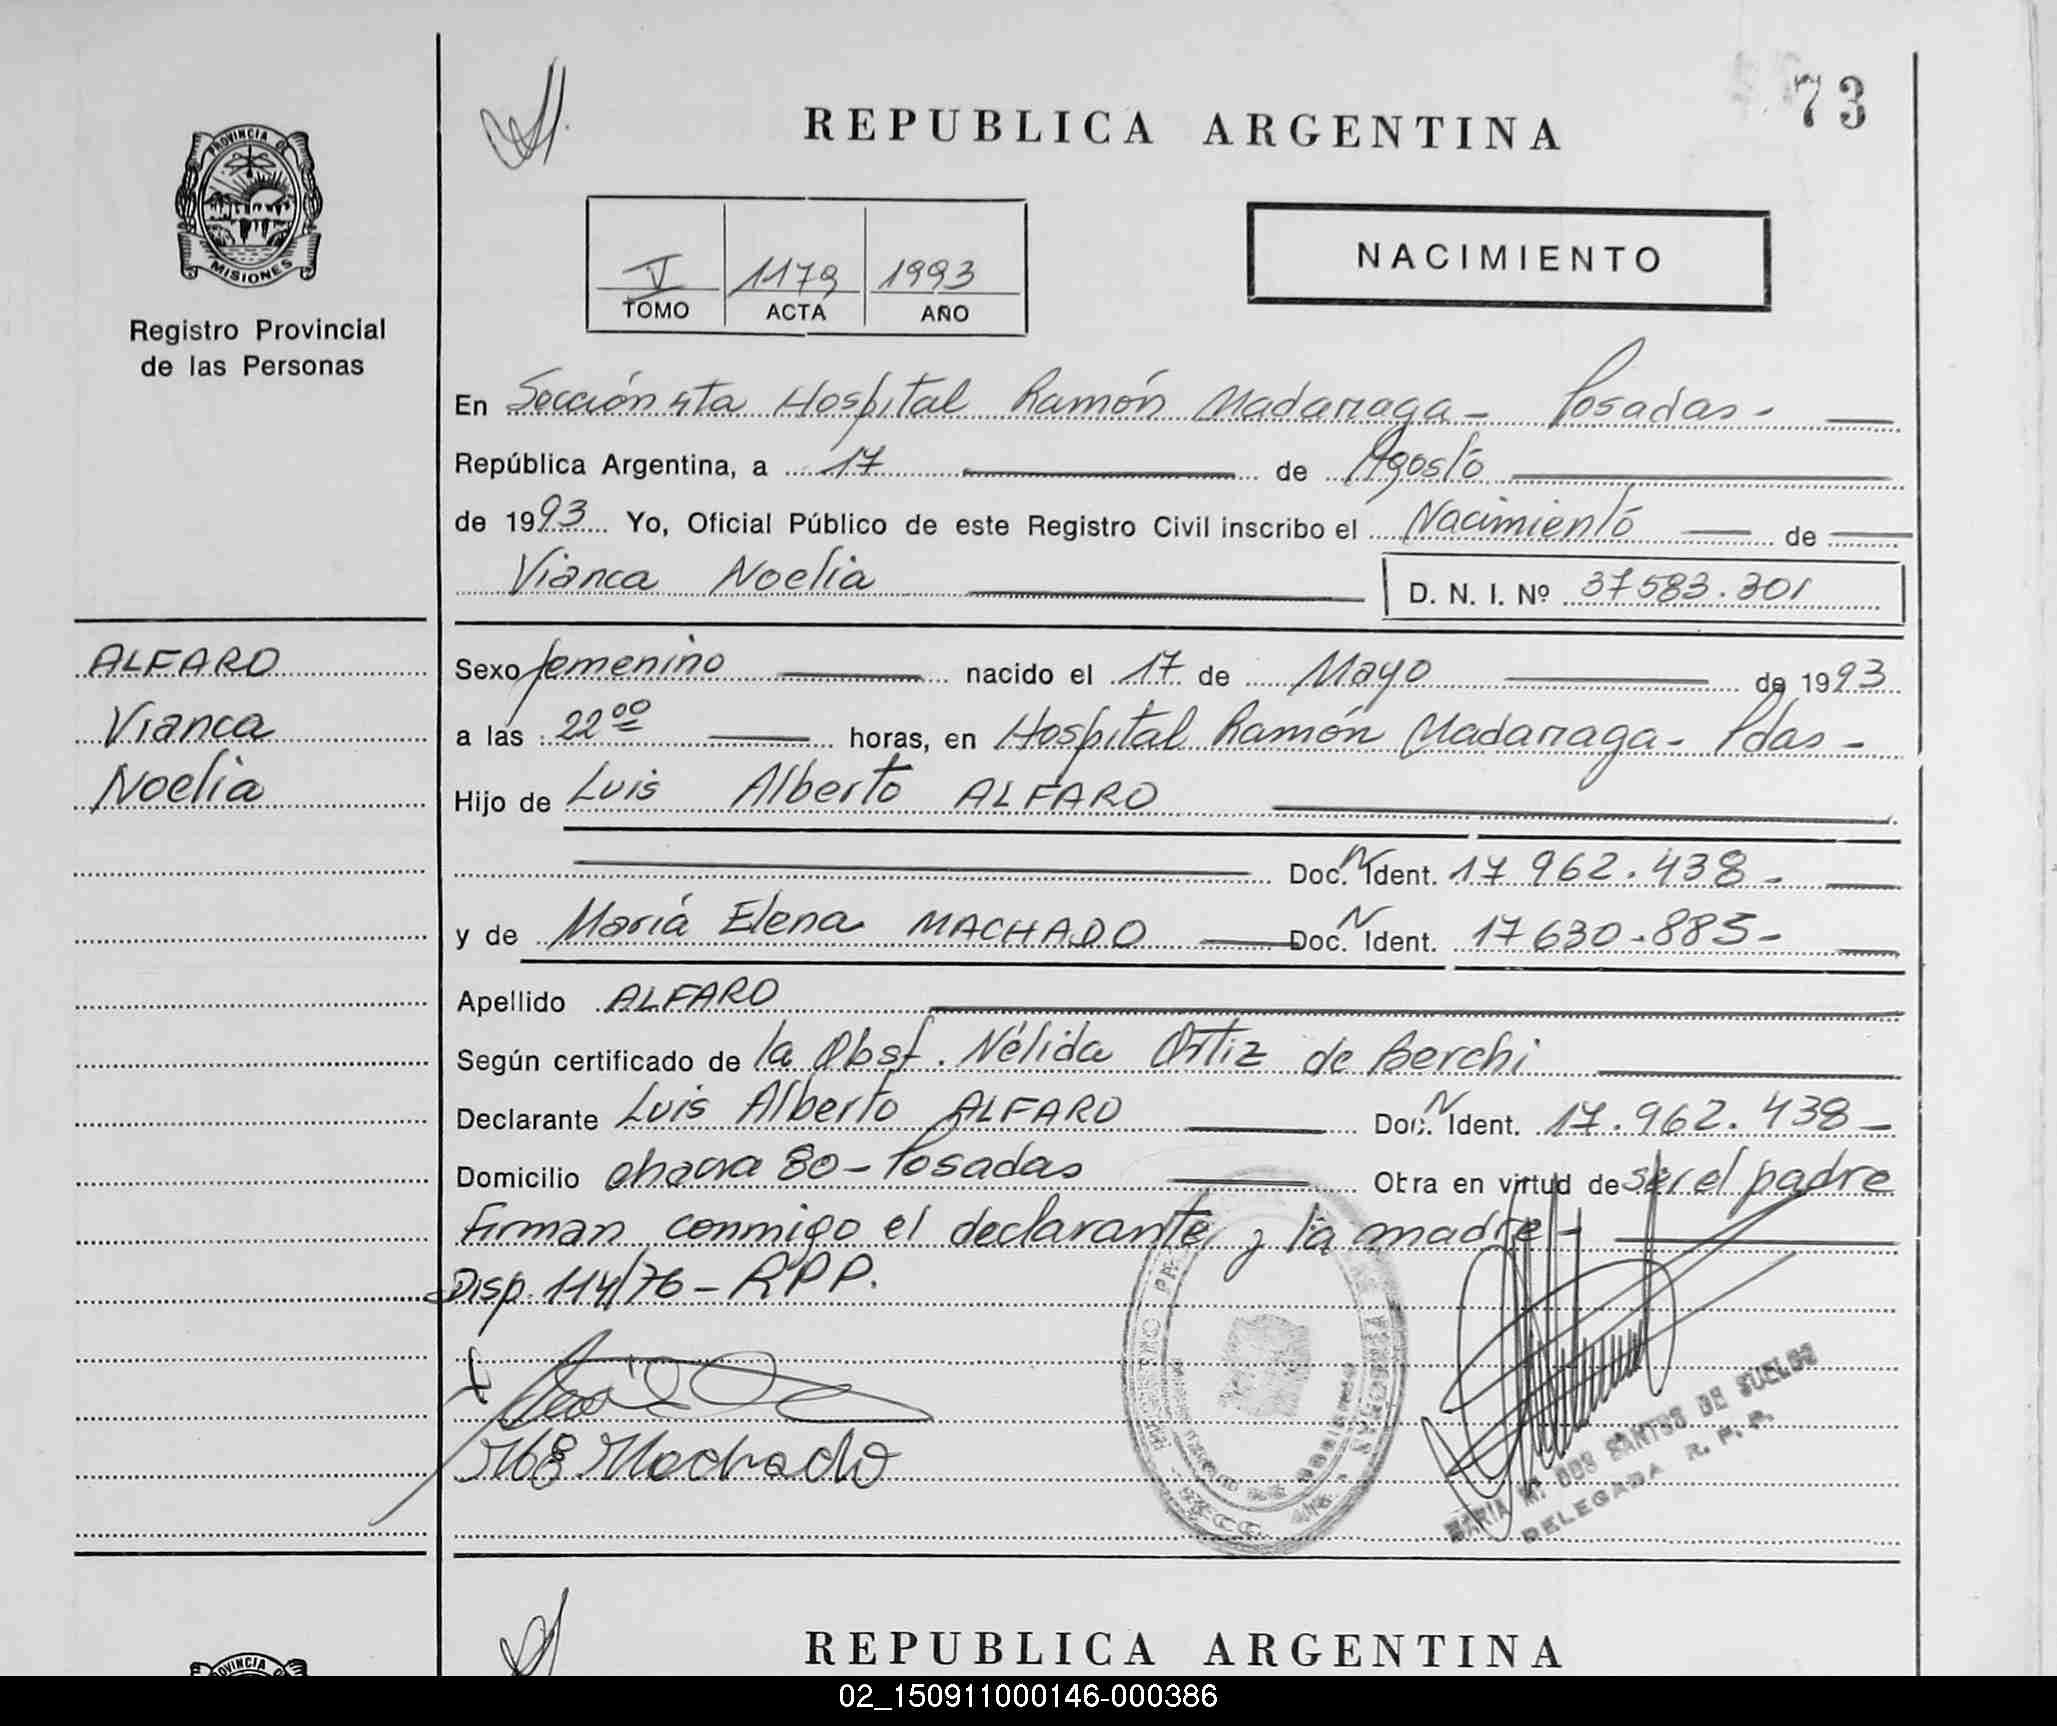 73
REPUBLICA ARGENTINA
PROVINCIA DE
MISIONES
Registro Provincial
de las Personas
V 1179 1993
TOMO ACTA AÑO
NACIMIENTO
En Sección 4ta Hospital Ramón Madariaga - Posadas -
República Argentina, a 17 de Agosto
de 1993 Yo, Oficial Público de este Registro Civil inscribo el Nacimiento de
Vianca Noelia D. N. I. Nº 37583.301
ALFARO
Vianca
Noelia
Sexo femenino nacido el 17 de Mayo de 1993
a las 22 00 horas, en Hospital Ramón Madariaga - Pdas -
Hijo de Luis Alberto ALFARO
Doc. N Ident. 17 962.438 -
y de María Elena MACHADO Doc. N Ident. 17 630.885 -
Apellido ALFARO
Según certificado de la Obst. Nélida Ortiz de Berchi
Declarante Luis Alberto ALFARO Doc. N Ident. 17.962.438 -
Domicilio chacra 80 - Posadas Obra en virtud de ser el padre
Firman conmigo el declarante y la madre -
Disp. 114/76 - R.P.P.
Machado
MARIA M. DOS SANTOS DE SUELDO
DELEGADA R. P. P.
REPUBLICA ARGENTINA
PROVINCIA DE
02_150911000146-000386